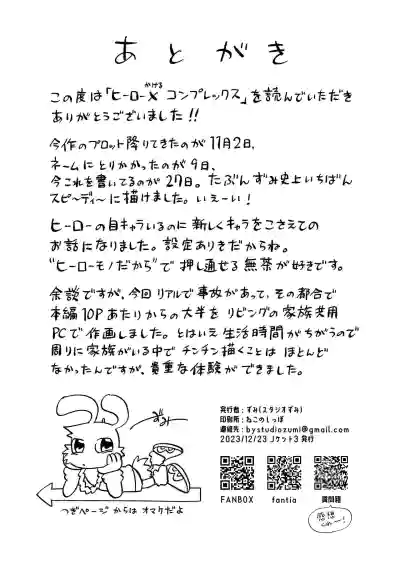 あとがき
この度は「ヒーロー×コンプレックス」を読んでいただき
かける
ありがとうございました!!
今作のプロット降りてきたのが11月2日、
ネームにとりかかったのが9日、
今これを書いてるのが27日。たぶんずみ史上いちばん
スピーディーに描けました。いえーい!
ヒーローの自キャラいるのに新しくキャラをこさえての
お話になりました。設定ありきだからね。
"ヒーローモノだから"で押し通せる無茶が好きです。
余談ですが、今回リアルで事故があって、その都合で
本編10Pあたりからの大半をリビングの家族共用
PCで作画しました。とはいえ生活時間がちがうので
周りに家族がいる中でチンチン描くことはほとんど
なかったんですが、貴重な体験ができました。
ずみー
発行者:ずみ(スタジオずみ)
印刷所:ねこのしっぽ
連絡先:bystudiozumi@gmail.com
2023/12/23 Jケット3 発行
FANBOX fantia 質問箱
感想
つぎページからはオマケだよ